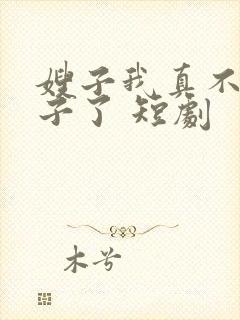 嫂子我真不
子了 短劇
木兮